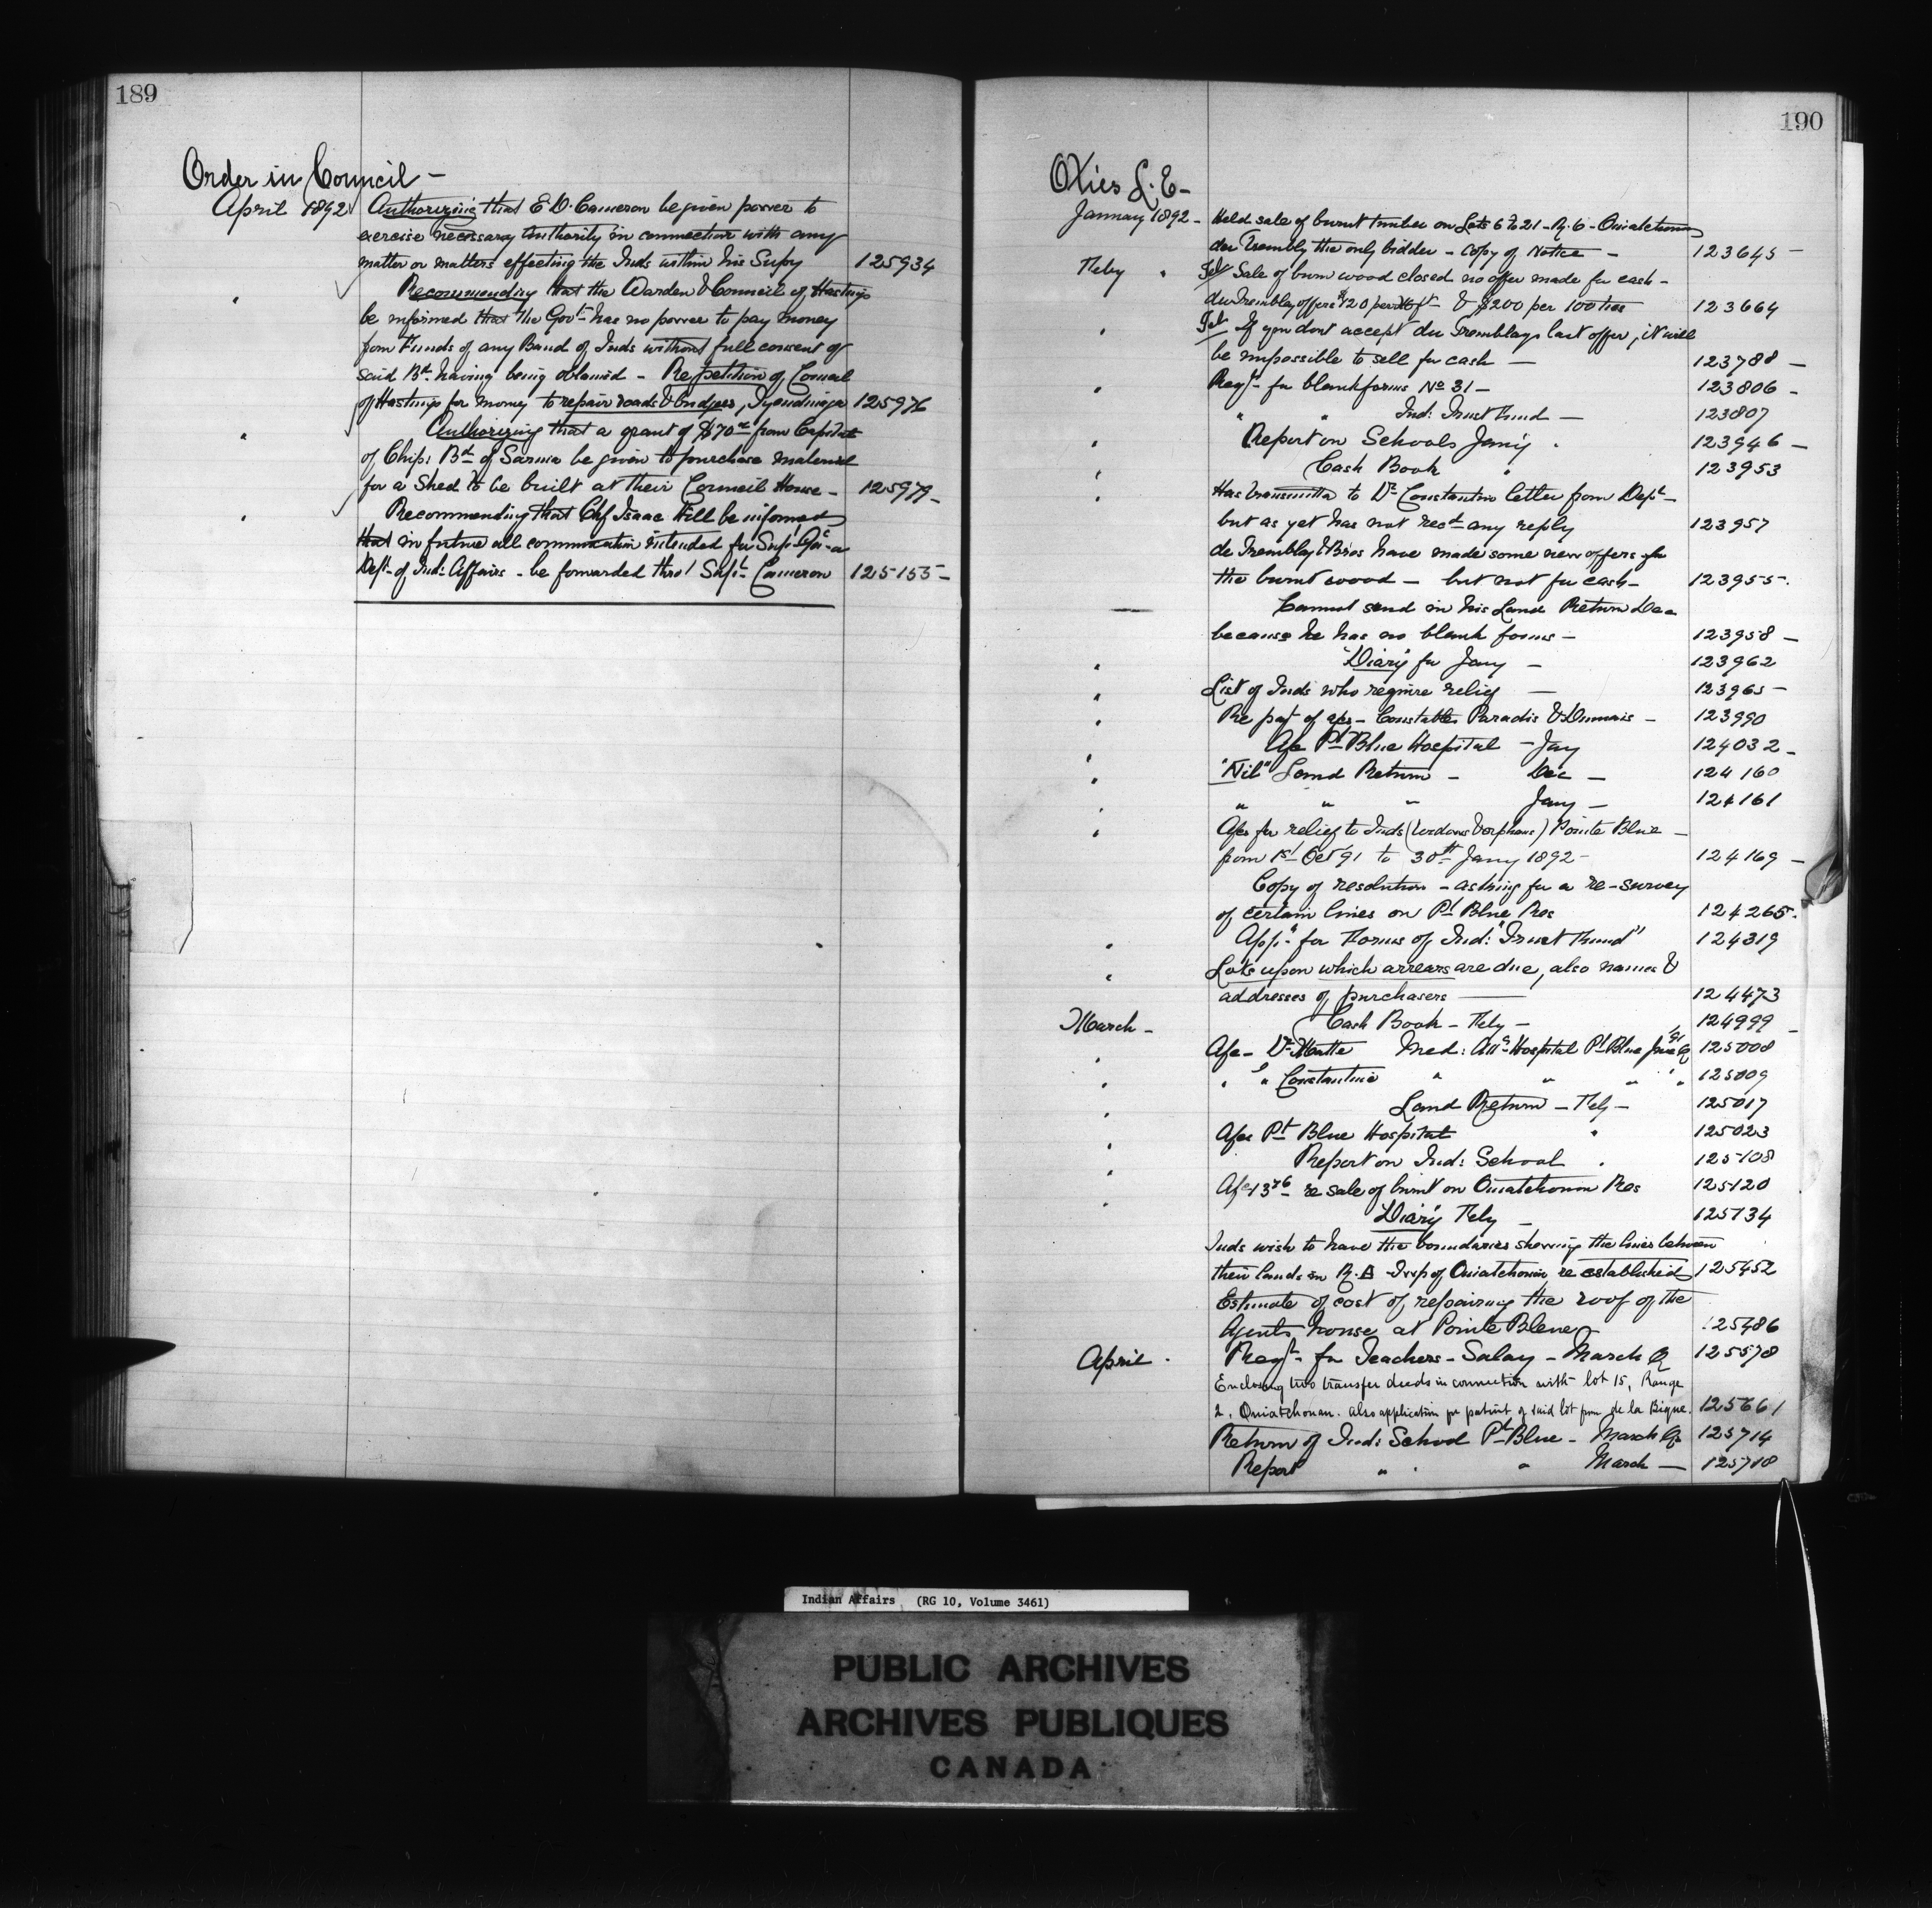 189
Order in Council -
April 1892 Authorizing that E D. Cameron be given power to
exercise necessary Authority in connection with any
matter or matters effecting the Inds within his Supcy 125934
" Recommending that the Warden & Council of Hastings
be informed that the Govt has no power to pay money
from Funds of any Band of Inds without full consent of
said Bd having being obtained - Re petition of Council
of Hastings for money to repair roads & bridges, Tyendinaga 125976
" Authorizing that a grant of $70 00 from Capital
of Chip: Bd of Sarnia be given to purchase material
for a Shed to be built at their Council House - 125979 -
" Recommending that Chf Isaac Hill be informed
that in future all communication intended for Supt Genl or
Dept of Ind: Affairs - be forwarded thro' Supt Cameron 125155 -
190
Otis L. E -
January 1892 - Held sale of burnt timber on Lots 6 to 21 - R. 6 - Ouiatchouan
du Trembly the only bidder - Copy of Notice - 123645 -
Feby " Tel Sale of burn wood closed no offer made for cash -
du Trembley offers $120 per & $200 per 100 ties 123664
" Tel If you dont accept du Tremblays last offer, it will
be impossible to sell for cash - 123788 -
" Reqt for blank forms No 31 - 123806 -
" " Ind: Trust Fund - 123807
" Report on Schools Jany . 123946 -
" Cash Book " 123953
" Has transmitted to Dr Constantin letter from Dept -
but as yet has not recd any reply 123957
de Tremblay & Bros have made some new offers for
the burnt wood - but not for cash - 123955 -
— Cannot send in his Land Return Dec
because he has no blank forms - 123958 -
" "Diary" for Jany - 123962
" List of Inds who require relief - 123965 -
" Re pat of a/cs - Constables Paradis & Dumais - 123990
" A/c Pt Blue Hospital - Jany 124032 -
" "Nil" Land Return - Dec - 124160
" " " " Jany - 124161
" A/cs for relief to Inds (widows & orphans) Pointe Blue -
from 1st Oct '91 to 30th Jany 1892 - 124169 -
Copy of resolution - asking for a re-survey
of certain lines on Pt Blue Res 124265.
" Appn for Forms of Ind: "Trust Fund" 124319
" Lots upon which arrears are due, also names &
addresses of purchasers — 124473
March - Cash Book - Feby - 124999 -
" A/c - Dr Matte Med: Atte Hospital Pt Blue 125008
" " " Constantin " " " " 125009
" Land Return - Feby - 125017
" A/cs Pt Blue Hospital " 125023
" Report on Ind: School . 125108
" re sale of burnt on Ouiatchouan Res 125120
" Diary Feby - 125134
Inds wish to have the boundaries shewing the lines between
their lands in R. Twp of Ouiatchouan, re established 125452
Estimate of cost of repairing the roof of the
Agents house at Pointe Bleue 125486
April . Reqt for Teachers - Salary - March Q 125578
Enclosing two transfer deeds in connection with lot 15, Range
2, Ouiatchouan. also application for patent of said lot from de la Bique. 125661
Return of Ind: School Pt Blue - March Qr 125714
Report " " " March — 125718
Indian Affairs (RG 10, Volume 3461)
PUBLIC ARCHIVES
ARCHIVES PUBLIQUES
CANADA